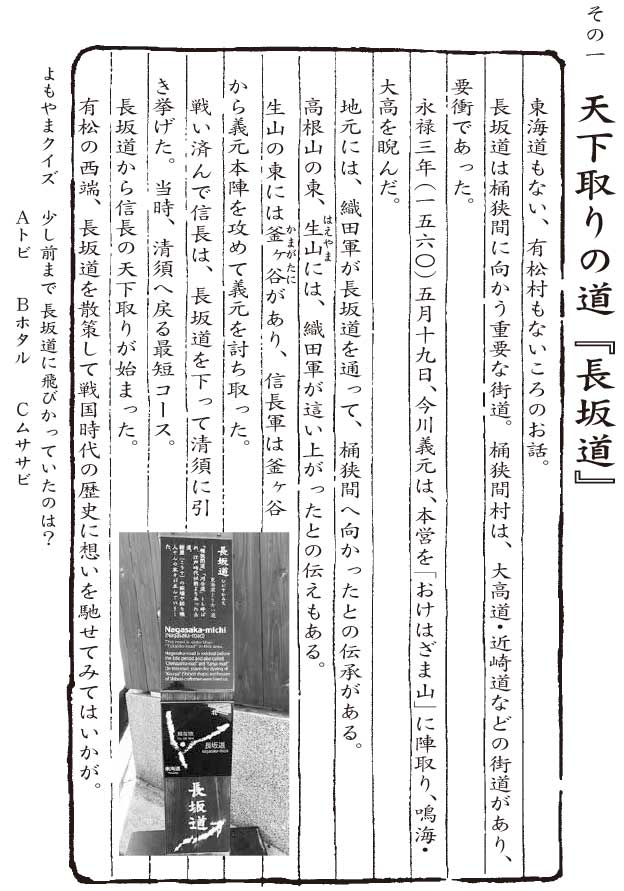 その一　天下取りの道『長坂道』
東海道もない、有松村もないころのお話。
長坂道は桶狭間に向かう重要な街道。桶狭間村は、大高道・近崎道などの街道があり、
要衝であった。
永禄三年（一五六〇）五月十九日、今川義元は、本営を「おけはざま山」に陣取り、鳴海・
大高を睨んだ。
地元には、織田軍が長坂道を通って、桶狭間へ向かったとの伝承がある。
高根山の東、生山には、織田軍が這い上がったとの伝えもある。
はえやま
生山の東には釜ヶ谷があり、信長軍は釜ヶ谷
かまがたに
から義元本陣を攻めて義元を討ち取った。
戦い済んで信長は、長坂道を下って清須に引
き挙げた。当時、清須へ戻る最短コース。
長坂道から信長の天下取りが始まった。
有松の西端、長坂道を散策して戦国時代の歴史に想いを馳せてみてはいかが。
長坂道
Nagasaka-michi
(Nagasaka-road)
長坂道
東海道
長坂道
よもやまクイズ　少し前まで長坂道に飛びかっていたのは？
Aトビ　Bホタル　Cムササビ